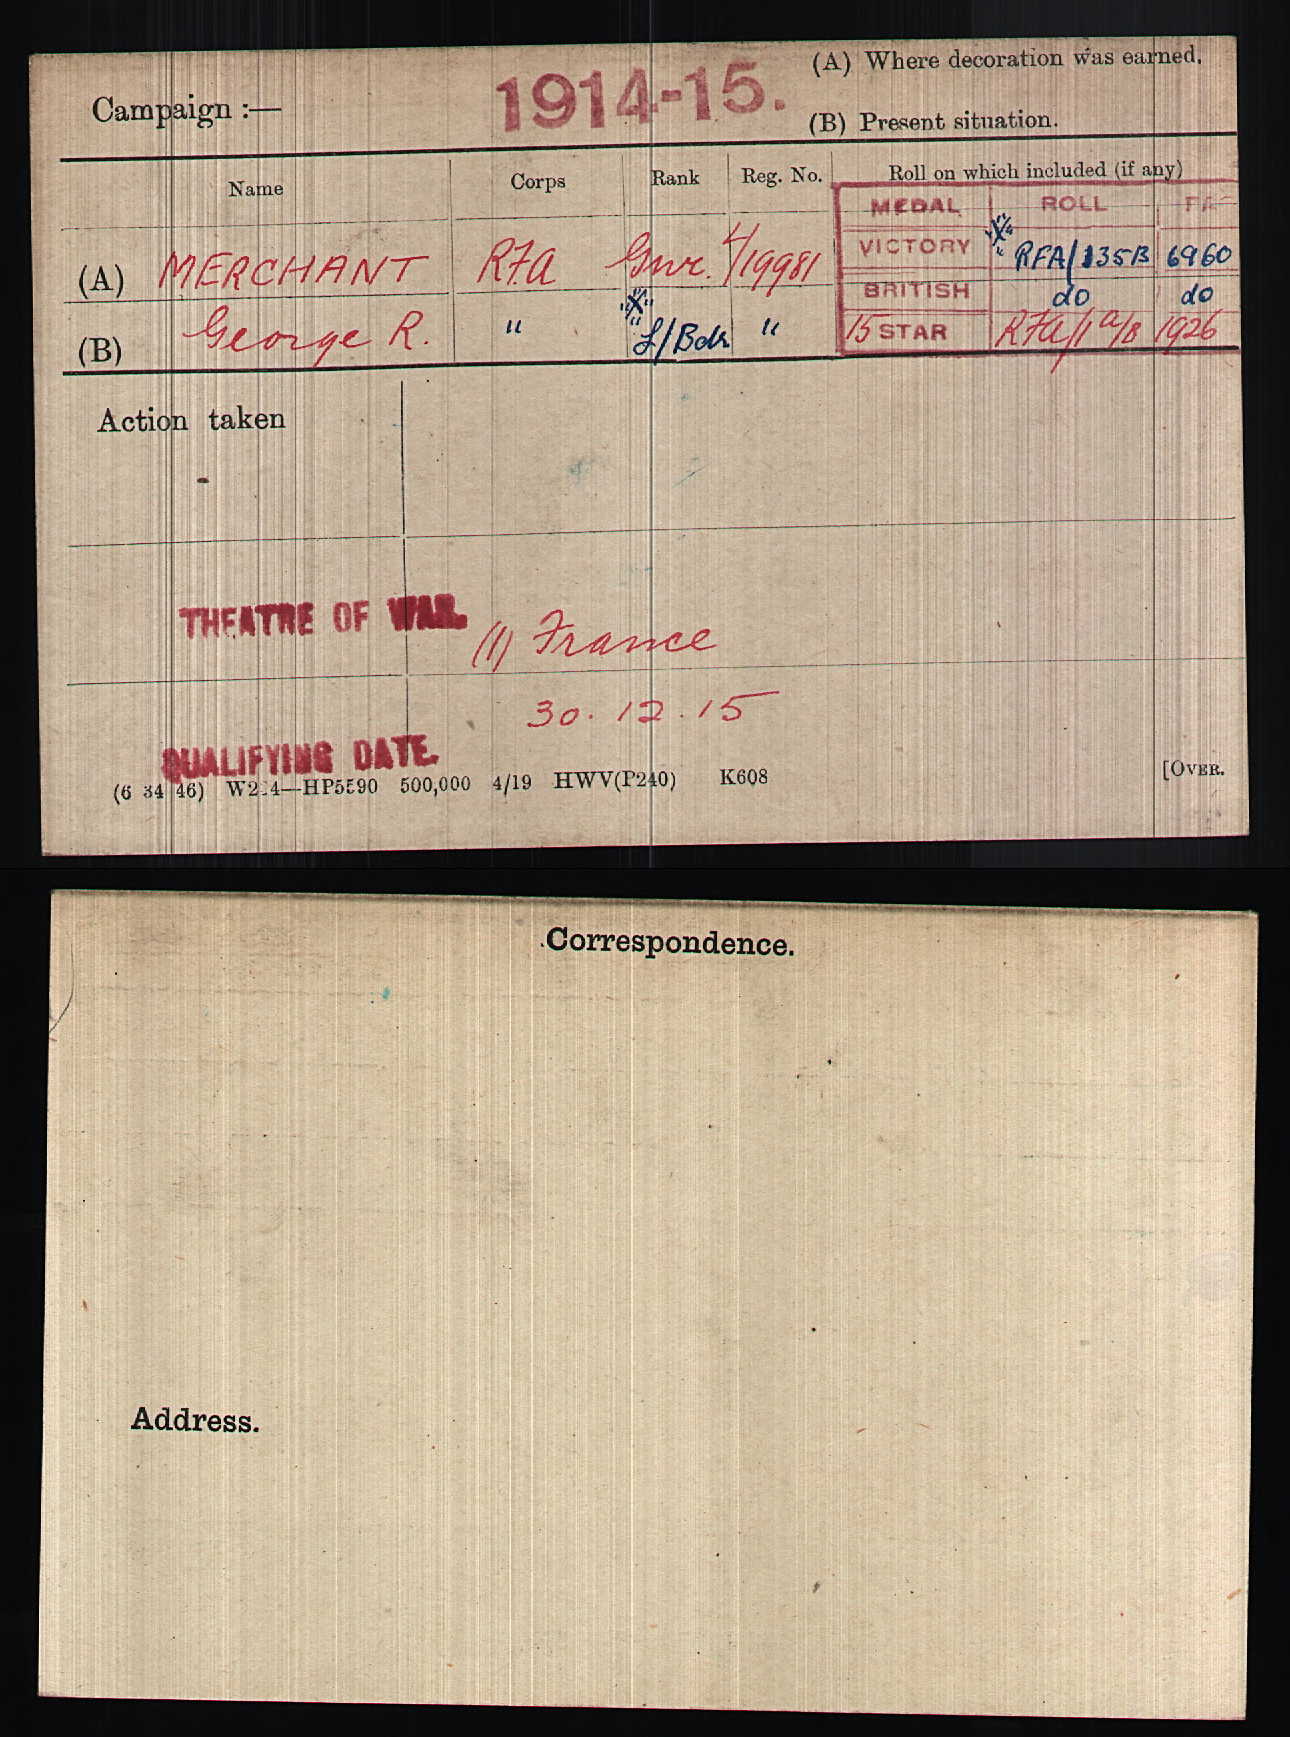 (A) Where decoration was earned.
Campaign :— 1914-15.
(B) Present situation.
Name Corps Rank Reg. No. Roll on which included (if any)
MEDAL ROLL
(A) MERCHANT RFA Gnr. 4/19981 VICTORY "X" " RFA/135B 6960
BRITISH do do
(B) George R. " "X" " L/Bdr " 15 STAR RFA/1a/B 1926
Action taken
THEATRE OF WAR. (1) France
30.12.15
QUALIFYING DATE.
(6 34 46) HP5590 500,000 4/19 HWV(P240) K608 [OVER.
Correspondence.
Address.